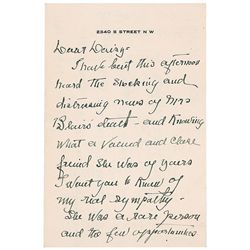 2340 S STREET N W
Dearest Daisy -
I have but this afternoon
heard the shocking and
distressing news of Mrs
Blair's death - and knowing
what a valued and close
friend she was of yours
I want you to know of
my real sympathy -
She was a rare person
and the few opportunities